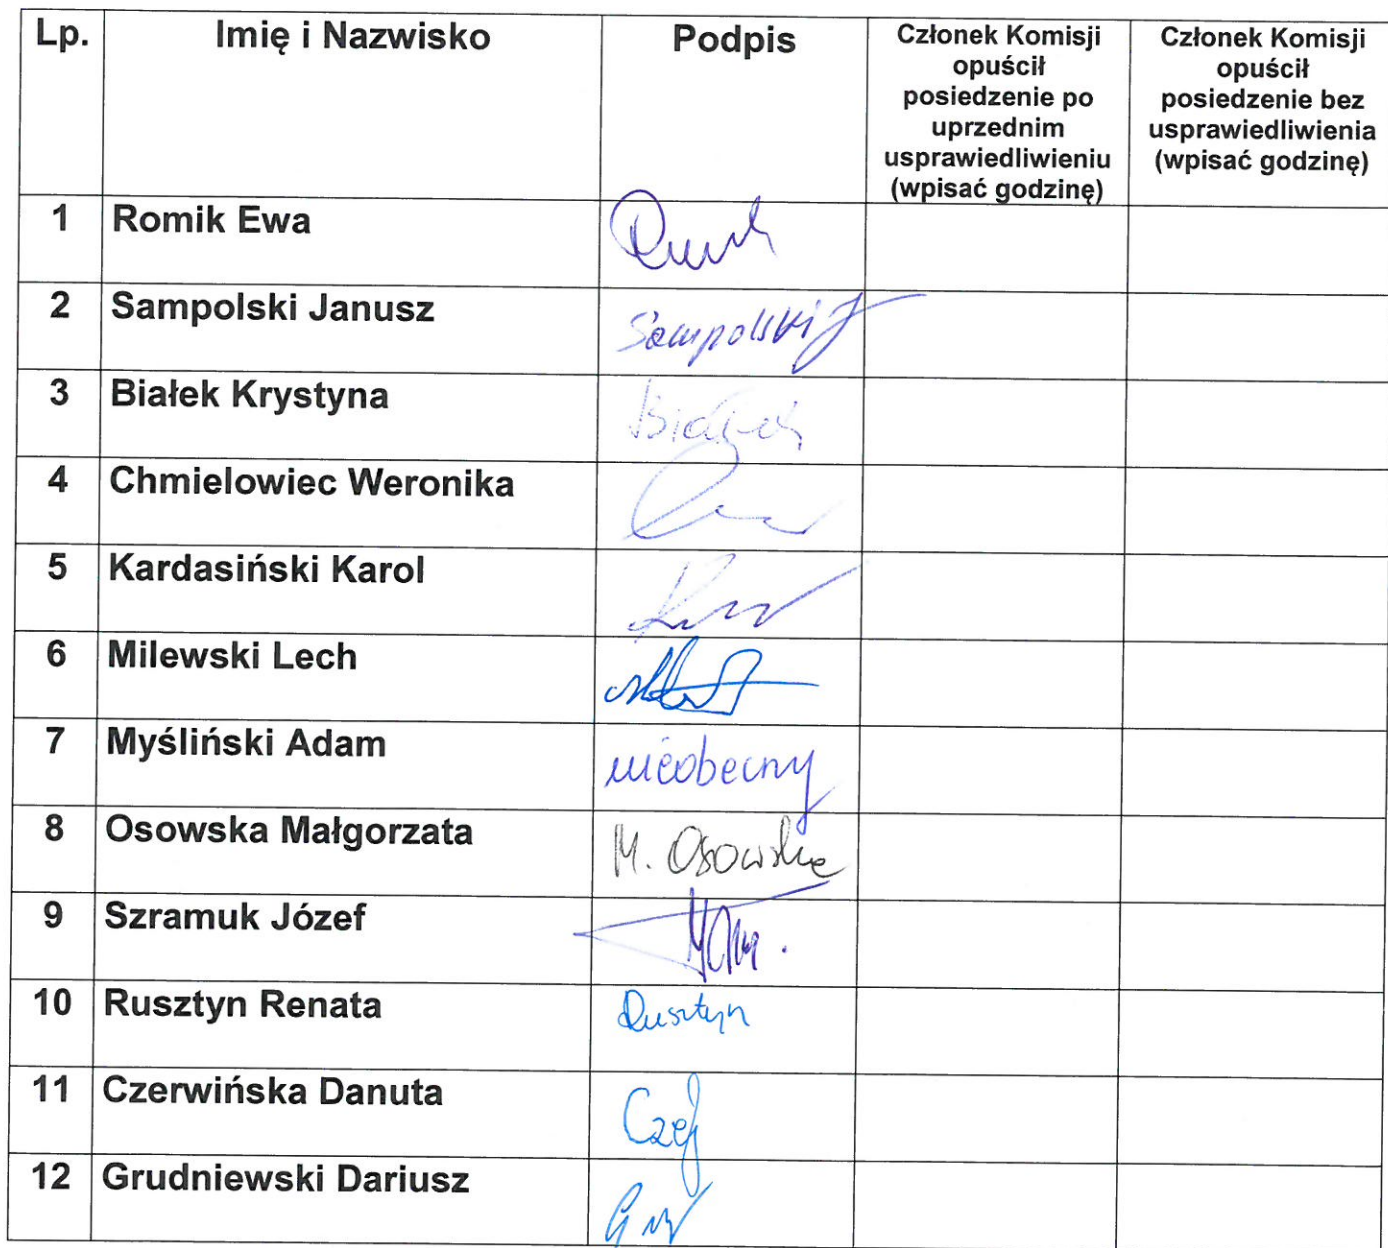 Lp. Imię i Nazwisko Podpis Członek Komisji opuścił posiedzenie po uprzednim usprawiedliwieniu (wpisać godzinę) Członek Komisji opuścił posiedzenie bez usprawiedliwienia (wpisać godzinę)
1 Romik Ewa
2 Sampolski Janusz Sampolski J
3 Białek Krystyna Białek
4 Chmielowiec Weronika
5 Kardasiński Karol
6 Milewski Lech
7 Myśliński Adam nieobecny
8 Osowska Małgorzata M. Osowska
9 Szramuk Józef
10 Rusztyn Renata Rusztyn
11 Czerwińska Danuta
12 Grudniewski Dariusz